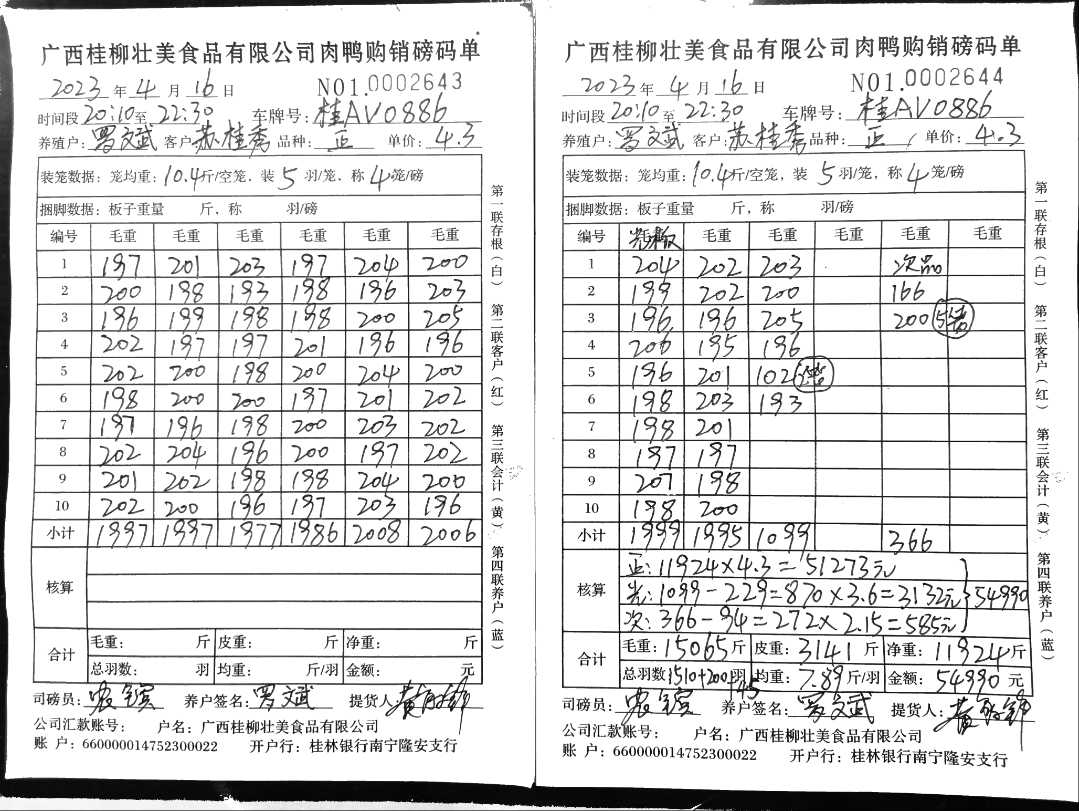 广西桂柳壮美食品有限公司肉鸭购销磅码单
2023 年 4 月 16 日 NO1.0002643
时间段 20:10 至 22:30 车牌号: 桂AV0886
养殖户: 罗文斌 客户 苏桂秀 品种: 正 单价: 4.3
装笼数据: 笼均重: 10.4 斤/空笼, 装 5 羽/笼, 称 4 笼/磅
捆脚数据: 板子重量 斤, 称 羽/磅
编号 毛重 毛重 毛重 毛重 毛重 毛重
1 197 201 203 197 204 200
2 200 198 193 198 196 203
3 196 199 198 198 200 205
4 202 197 197 201 196 196
5 202 200 198 200 204 200
6 198 200 200 197 201 202
7 197 196 198 200 203 202
8 202 204 196 200 197 202
9 201 202 198 198 204 200
10 202 200 196 197 203 196
小计 1997 1997 1977 1986 2008 2006
核算
合计 毛重: 斤 皮重: 斤 净重: 斤
总羽数: 羽 均重: 斤/羽 金额: 元
司磅员: 养户签名: 罗文斌 提货人:
公司汇款账号: 户名: 广西桂柳壮美食品有限公司
账 户: 660000014752300022 开户行: 桂林银行南宁隆安支行
第一联存根(白) 第二联客户(红) 第三联会计(黄) 第四联养户(蓝)
广西桂柳壮美食品有限公司肉鸭购销磅码单
2023 年 4 月 16 日 NO1.0002644
时间段 20:10 至 22:30 车牌号: 桂AV0886
养殖户: 罗文斌 客户: 苏桂秀 品种: 正 单价: 4.3
装笼数据: 笼均重: 10.4 斤/空笼, 装 5 羽/笼, 称 4 笼/磅
捆脚数据: 板子重量 斤, 称 羽/磅
编号 毛重 毛重 毛重 毛重 毛重
1 204 202 203 次品
2 199 202 200 166
3 196 196 205 200 5笼
4 200 195 196
5 196 201 102 2笼
6 198 203 193
7 198 201
8 197 197
9 207 198
10 198 200
小计 1999 1995 1099 366
核算 正: 11924×4.3=51273元
光: 1099-229=870×3.6=3132元 54990
次: 366-94=272×2.15=585元
合计 毛重: 15065 斤 皮重: 3141 斤 净重: 11924 斤
总羽数: 1510+200 羽 均重: 7.89 斤/羽 金额: 54990 元
145
司磅员: 养户签名: 罗文斌 提货人:
公司汇款账号: 户名: 广西桂柳壮美食品有限公司
账 户: 660000014752300022 开户行: 桂林银行南宁隆安支行
第一联存根(白) 第二联客户(红) 第三联会计(黄) 第四联养户(蓝)